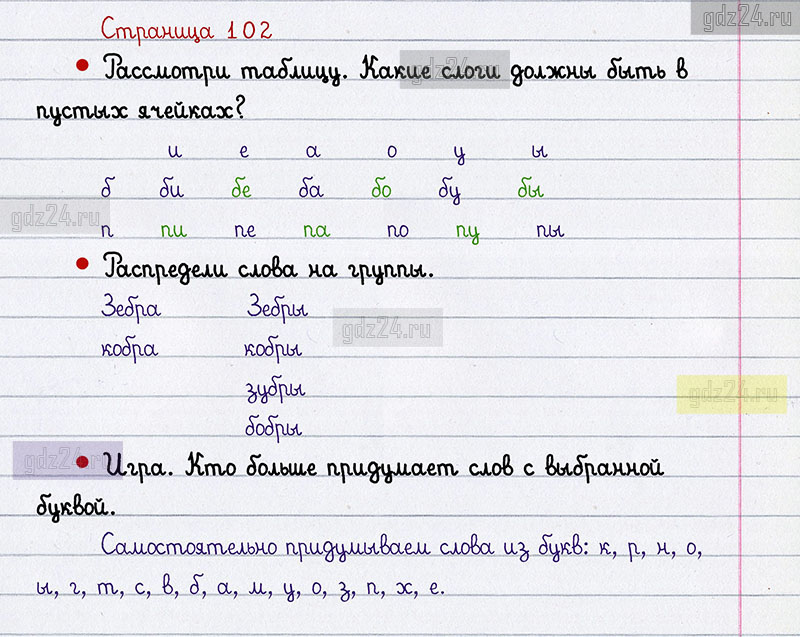 gdz24.ru
Страница 102
• Рассмотри таблицу. Какие слоги должны быть в
gdz24.ru
пустых ячейках?
и е а о у ы
б би бе ба бо бу бы
gdz24.ru
п пи пе па по пу пы
• Распредели слова на группы.
Зебра Зебры
gdz24.ru
кобра кобры
зубры
gdz24.ru
бобры
gdz24.ru
• Игра. Кто больше придумает слов с выбранной
буквой.
Самостоятельно придумываем слова из букв: к, р, н, о,
ы, г, т, с, в, б, а, м, у, о, з, п, х, е.